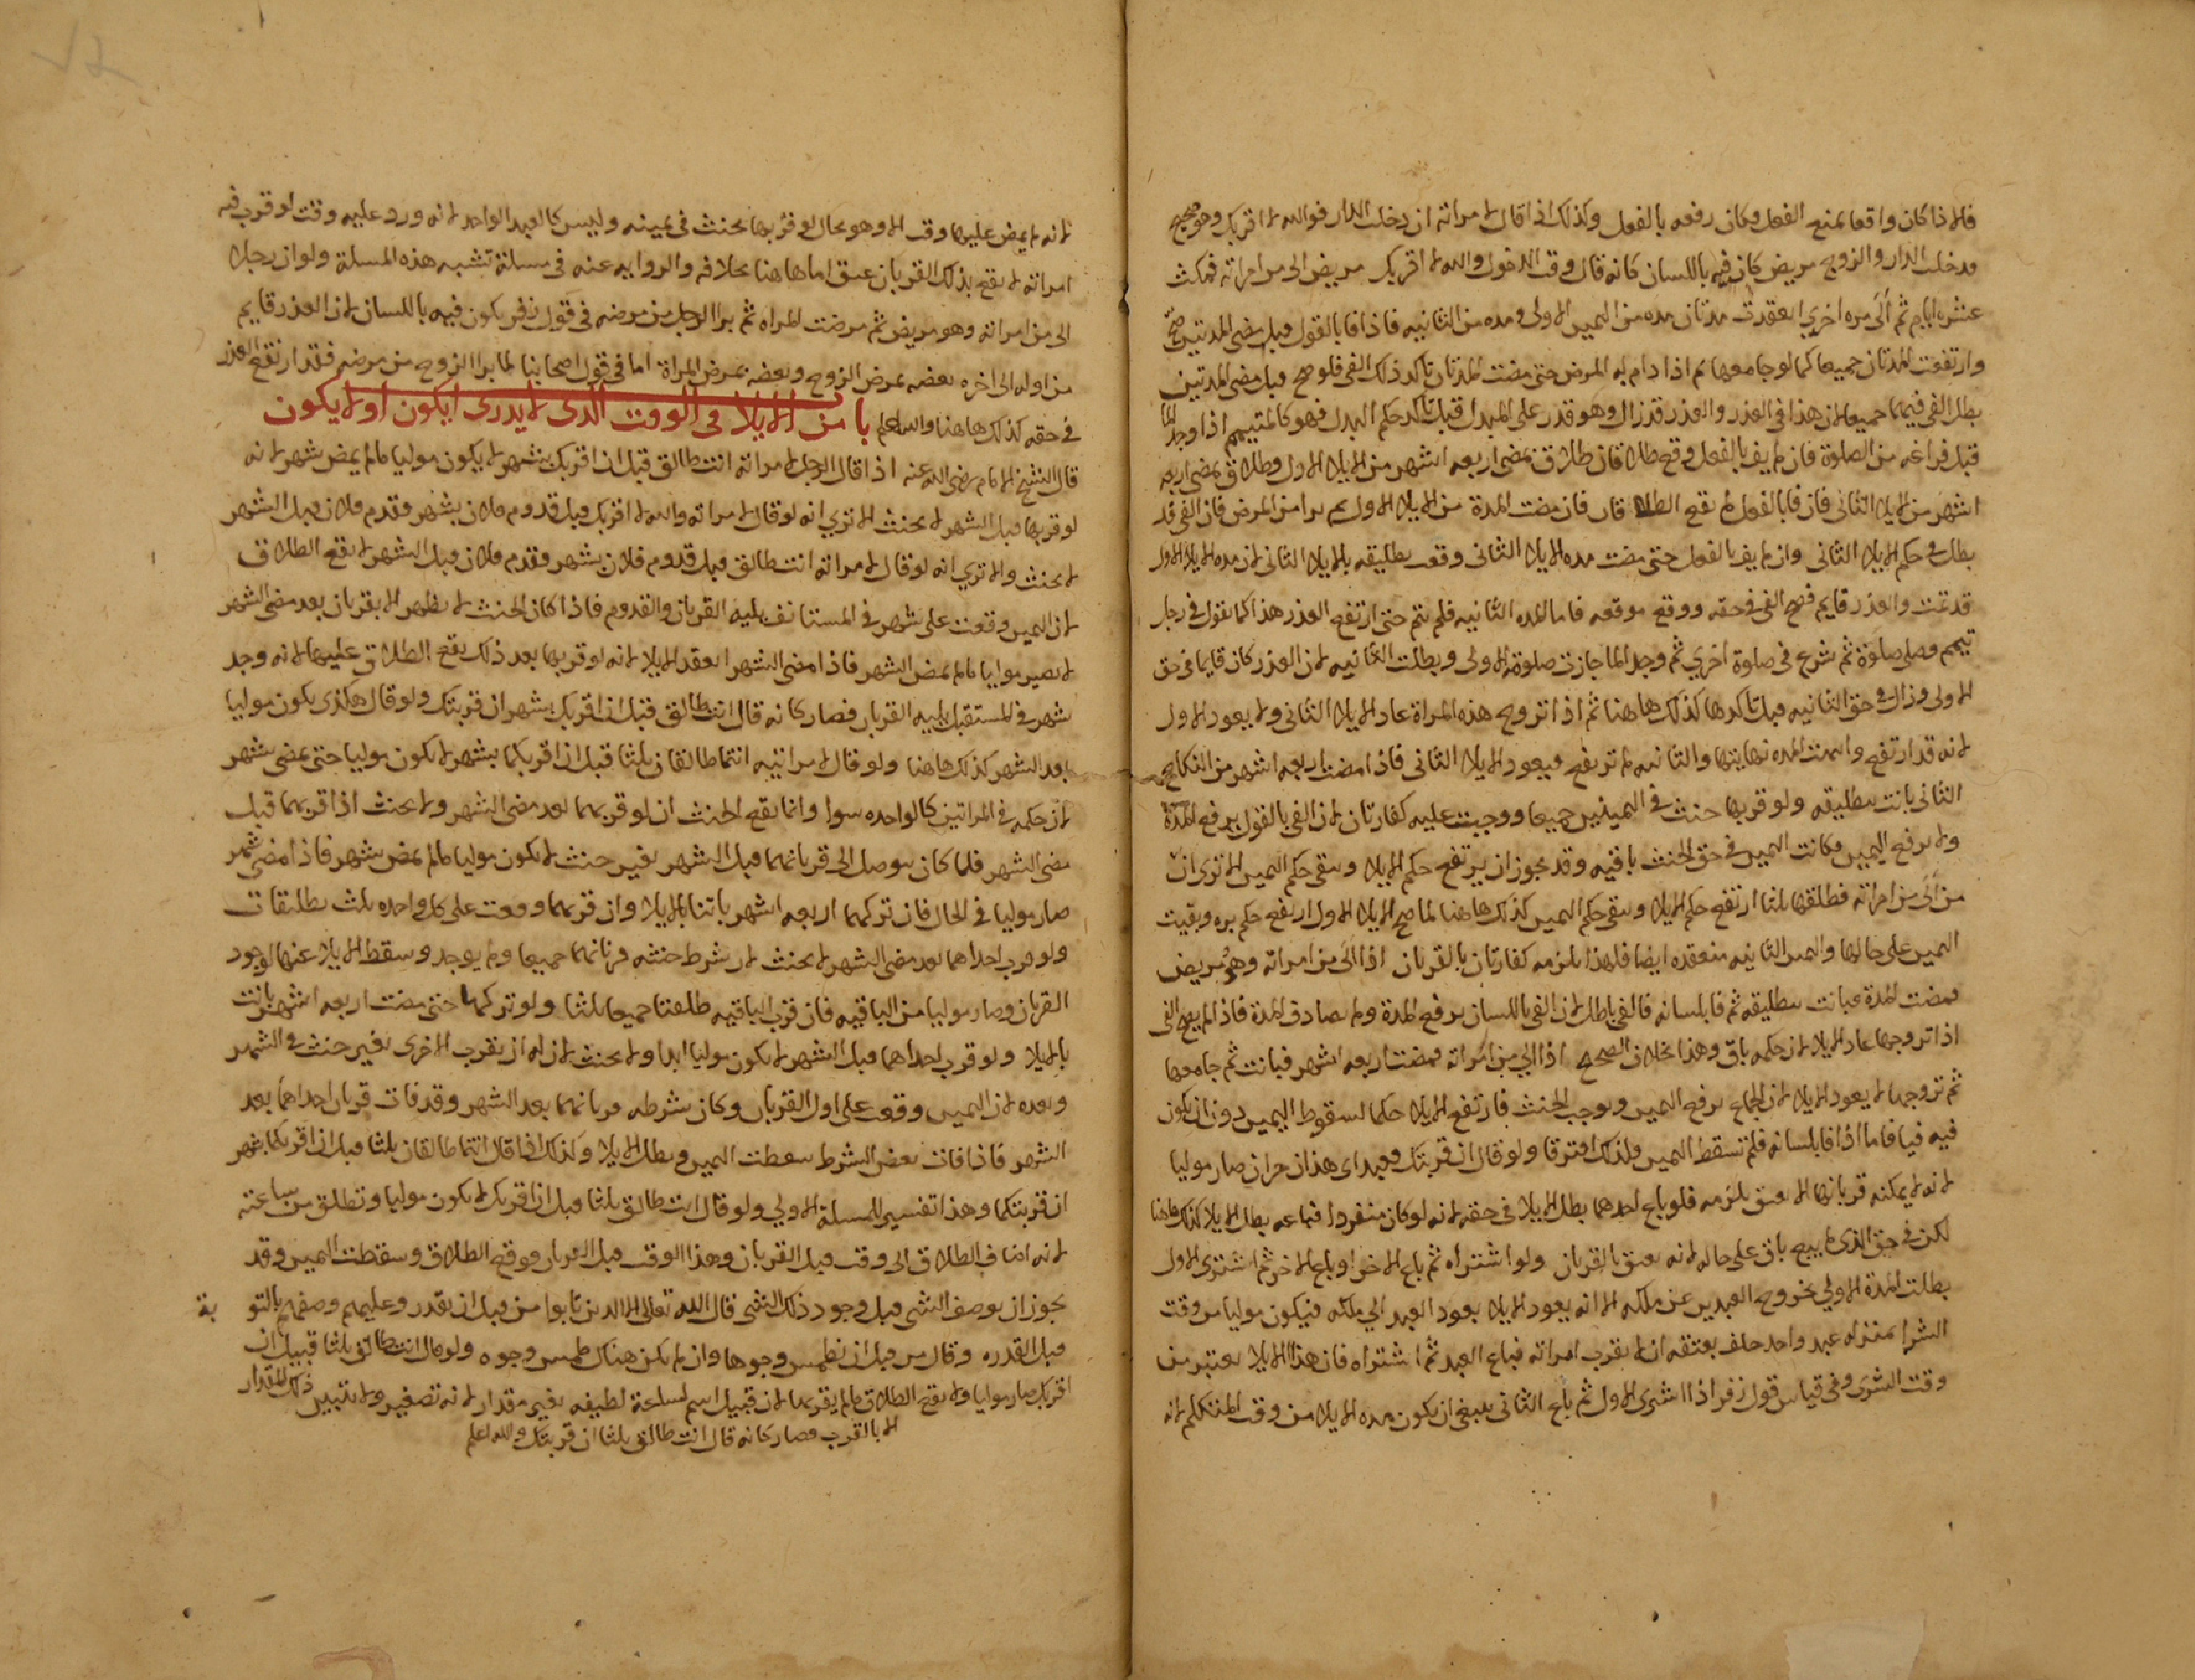 فلهذا كان واقعا بمنع الفعل وكان رفعه بالفعل وكذلك اذا قال لامراته ان دخلت الدار فوالله لا اقربك وهو صحيح
فدخلت الدار والزوج مريض كان فيه باللسان كانه قال وقت الدخول والله لا اقربك مريض الى من امراته فمكث
عشره ايام ثم آلى مره اخري انعقدت مدتان مده من اليمين الاولى ومده من الثانيه فاذا فا بالقول قبل مضى المدتين صح
وارتفعت المدتان جميعا كما لو جامعها ثم اذا دام به المرض حتى مضت المدتان تاكد ذلك الفى فلو صح قبل مضى المدتين
بطل الفى فيهما جميعا لان هذا فى العذر والعذر قد زال وهو قدر على المبدل قبل تاكد حكم البدل فهو كالمتيمم اذا وجد الما
قبل فراغه من الصلوة فان لم يف بالفعل وقع طلاقان طلاق بمضى اربعه اشهر من الايلا الاول وطلاق بمضى اربعه
اشهر من الايلا الثانى فان فا بالفعل لم يقع الطلا قان فان مضت المدة من الايلا الاول ثم برا من المرض فان الفى قد
بطل فى حكم الايلا الثانى وان لم يف بالفعل حتى مضت مده الايلا الثانى وقعت تطليقه بالايلا الثانى لان مده الايلا الاول
قد تمت والعذر قايم فصح الفى فى حقه ووقع موقعه فاما المده الثانيه فلم تتم حتى ارتفع العذر هذا كما نقول فى رجل
تيمم وصلى صلوة ثم شرع فى صلوة اخري ثم وجد الما جازت صلوة الاولى وبطلت الثانيه لان العذر كان قايما فى حق
الاولى وزال فى حق الثانيه قبل تاكدها كذلك هاهنا ثم اذا تزوج هذه المراة عاد الايلا الثانى ولا يعود الاول
لانه قد ارتفع وانتهت المده نهايتها والثانيه لم ترتفع فيعود الايلا الثانى فاذا مضت اربعه اشهر من النكاح
الثانى بانت بتطليقه ولو قربها حنث فى اليمينين جميعا ووجبت عليه كفارتان لان الفى بالقول يرفع المدة
ولا يرفع اليمين فكانت اليمين فى حق الحنث باقيه وقد يجوز ان يرتفع حكم الايلا ويبقى حكم اليمين الا ترى ان
من آلى من امراته فطلقها ثلثا ارتفع حكم الايلا ويبقى حكم اليمين كذلك هاهنا لما صح الايلا الاول ارتفع حكم بره وبقيت
اليمين على حالها واليمين الثانيه منعقده ايضا فلهذا يلزمه كفارتان بالقربان اذا آلى من امراته وهو مريض
فمضت المدة فبانت بتطليقه ثم فا بلسانه فالفى باطل لان الفى باللسان يرفع المدة ولم يصادف المدة فاذا لم يصح الفى
اذا تزوجها عاد الايلا لان حكمه باق وهذا بخلاف الصحيح اذا الى من امراته فمضت اربعه اشهر فبانت ثم جامعها
ثم تزوجها لا يعود الايلا لان الجماع يرفع اليمين ويوجب الحنث فارتفع الايلا حكما لسقوط اليمين دون ان يكون
فيه فيا فاما اذا فا بلسانه فلم تسقط اليمين فلذلك افترقا ولو قال ان قربتك فعبداى هذان حران صار موليا
لانه لا يمكنه قربانها الا بعتق يلزمه فلو باع احدهما بطل الايلا فى حقه لانه لو كان منفردا فباعه بطل الايلا كذلك هاهنا
لكن فى حق الذى لم يبع باق على حاله لانه يعتق بالقربان ولو اشتراه ثم باع الاخر او باع الاخر ثم اشترى الاول
بطلت المدة الاولى بخروج العبدين عن ملكه الا انه يعود الايلا بعود العبد الى ملكه فيكون موليا من وقت
الشرا بمنزله عبد واحد حلف بعتقه ان لا يقرب امراته فباع العبد ثم اشتراه فان هذا الايلا يعتبر من
وقت الشرى وفى قياس قول زفر اذا اشترى الاول ثم باع الثانى ينبغى ان يكون مده الايلا من وقت المتكلم لانه
لانه لم يمض عليها وقت الا وهو بحال لو قربها يحنث فى يمينه وليس كالعبد الواحد لانه ورد عليه وقت لو قرب فيه
امراته لا يقع بذلك القربان عتق اما هاهنا بخلافه والروايه عنه فى مسئلة تشبه هذه المسلة ولو ان رجلا
الى من امراته وهو مريض ثم مرضت المراه ثم برا الرجل من مرضه فى قول زفر يكون فيه باللسان لان العذر قايم
من اوله الى اخره بعضه بمرض الزوج وبعضه بمرض المراة اما فى قول اصحابنا لما برا الزوج من مرضه فقد ارتفع العذر
فى حقه كذلك هاهنا والله اعلم با من الايلا فى الوقت الذى لا يدرى ايكون او لا يكون
قال الشيخ الامام رضى الله عنه اذا قال الرجل لامراته انت طالق قبل ان اقربك بشهر لا يكون موليا ما لم يمض شهر لانه
لو قربها قبل الشهر لا يحنث الا تري انه لو قال لامراته والله لا اقربك قبل قدوم فلان بشهر وقدم فلان قبل الشهر
لا يحنث والا تري انه لو قال لامراته انت طالق قبل قدوم فلان بشهر وقدم فلان قبل الشهر لا يقع الطلاق
لان اليمين وقعت على شهر فى المستانف يليه القربان والقدوم فاذا كان الحنث لا يظهر الا بقربان بعد مضى الشهر
لا يصير موليا ما لم يمض الشهر فاذا مضى الشهر انعقد الايلا لانه لو قربها بعد ذلك يقع الطلاق عليها لانه وجد
شهر فى المستقبل يليه القربان فصار كانه قال انت طالق قبل ان اقربك بشهر ان قربتك ولو قال هكذى يكون موليا
بعد الشهر كذلك هاهنا ولو قال لامراتيه انتما طالقان ثلثا قبل ان اقربكما بشهر لا يكون موليا حتى يمضى شهر
لان حكمه فى المراتين كالواحده سوا وانما يقع الحنث ان لو قربهما بعد مضى الشهر ولا يحنث اذا قربهما قبل
مضى الشهر فلما كان يتوصل الى قربانهما قبل الشهر بغير حنث لا يكون موليا ما لم يمض شهر فاذا مضى شهر
صار موليا فى الحال فان تركهما اربعه اشهر بانتا بالايلا وان قربهما وقعت على كل واحده ثلث تطليقات
ولو قرب احداهما بعد مضى الشهر لا يحنث لان شرط حنثه قربانهما جميعا ولم يوجد وسقط الايلا عنها لوجود
القربان وصار موليا من الباقيه فان قرب الباقيه طلقتا جميعا ثلثا ولو تركهما حتى مضت اربعه اشهر بانت
بالايلا ولو قرب احداهما قبل الشهر لا يكون موليا ابدا ولا يحنث لان له ان يقرب الاخرى بغير حنث فى الشهر
وبعده لان اليمين وقعت على اول القربان وكان شرطه قربانهما بعد الشهر وقد فات قربان احداهما بعد
الشهر فاذا فات بعض الشرط سقطت اليمين وبطل الايلا وكذلك اذا قال انتما طالقان ثلثا قبل ان اقربكما بشهر
ان قربتكما وهذا تفسير للمسلة الاولى ولو قال انت طالق ثلثا قبل ان اقربك لا يكون موليا وتطلق من ساعته
لانه اضاف الطلاق الى وقت قبل القربان وهذا الوقت قبل القربان فوقع الطلاق وسقطت اليمين وقد
يجوز ان يوصف الشى قبل وجود ذلك الشى قال الله تعالى الا الذين تابوا من قبل ان تقدر وعليهم وصفهم بالتو بة
قبل القدره وقال من قبل ان نطمس وجوها وان لم يكن هناك طمس وجوه ولو قال انت طالق ثلثا قبيل ان
اقربك صار موليا ولا يقع الطلاق ما لم يقربها لان قبيل اسم لساعة لطيفه بغير مقدار لانه تصغير ولا يتبين ذلك المقدار
الا بالقرب فصار كانه قال انت طالق ثلثا ان قربتك والله اعلم